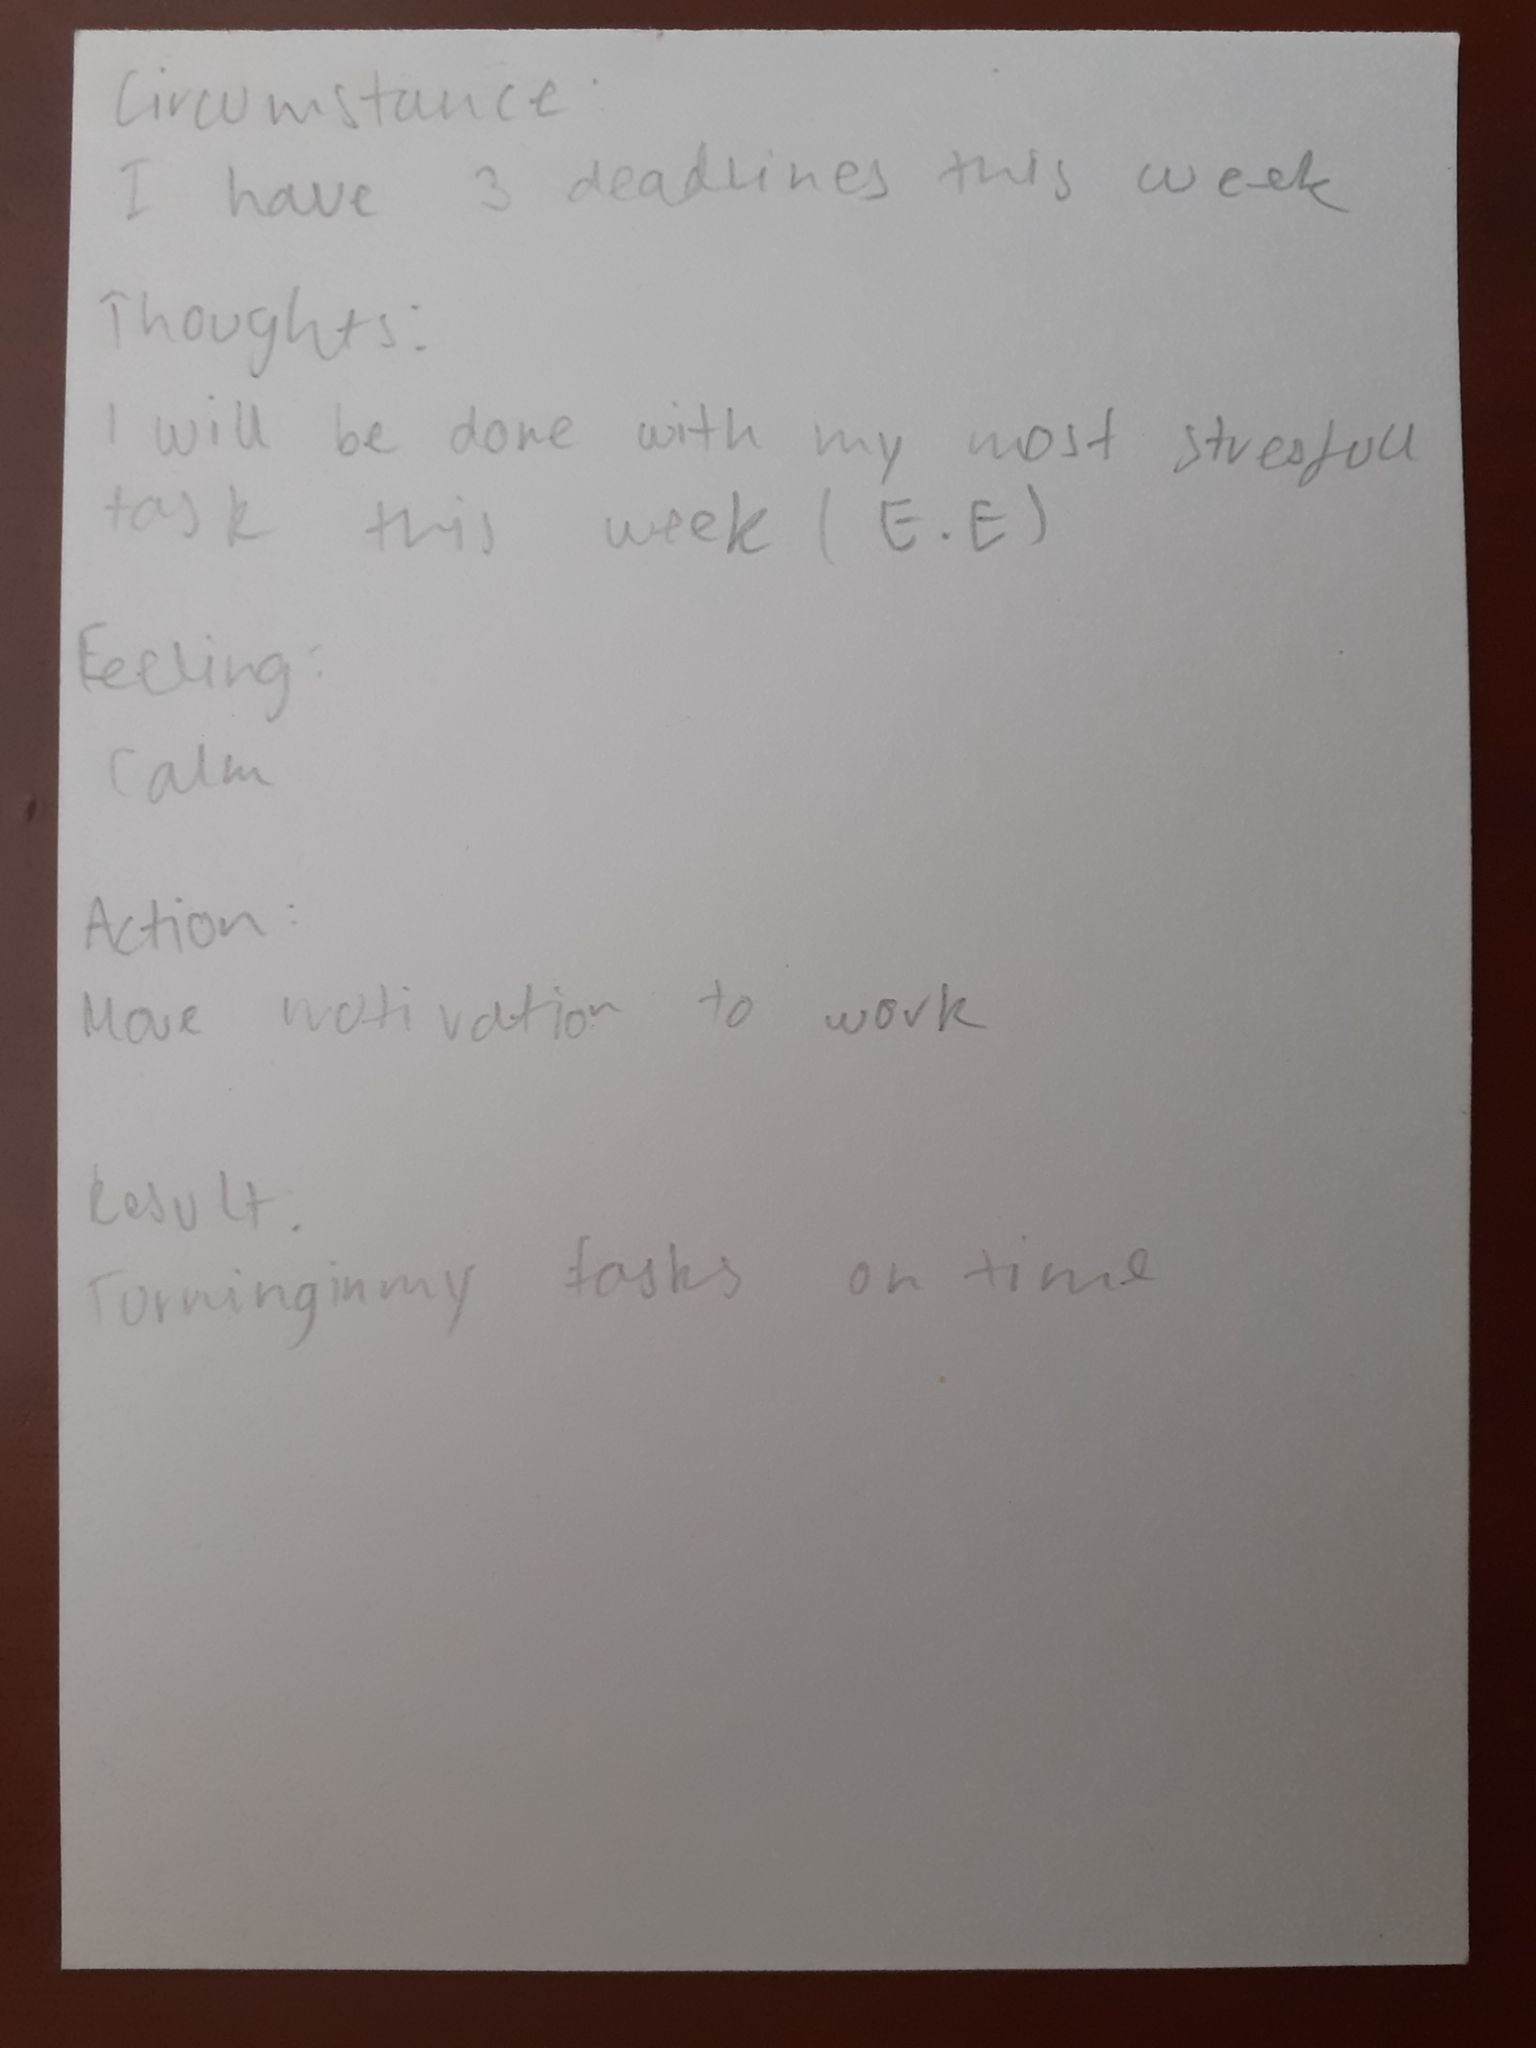 Circumstance:
I have 3 deadlines this week
Thoughts:
I will be done with my most stresfull
task this week (E.E)
Feeling:
Calm
Action:
More motivation to work
Result:
Turning in my tasks on time